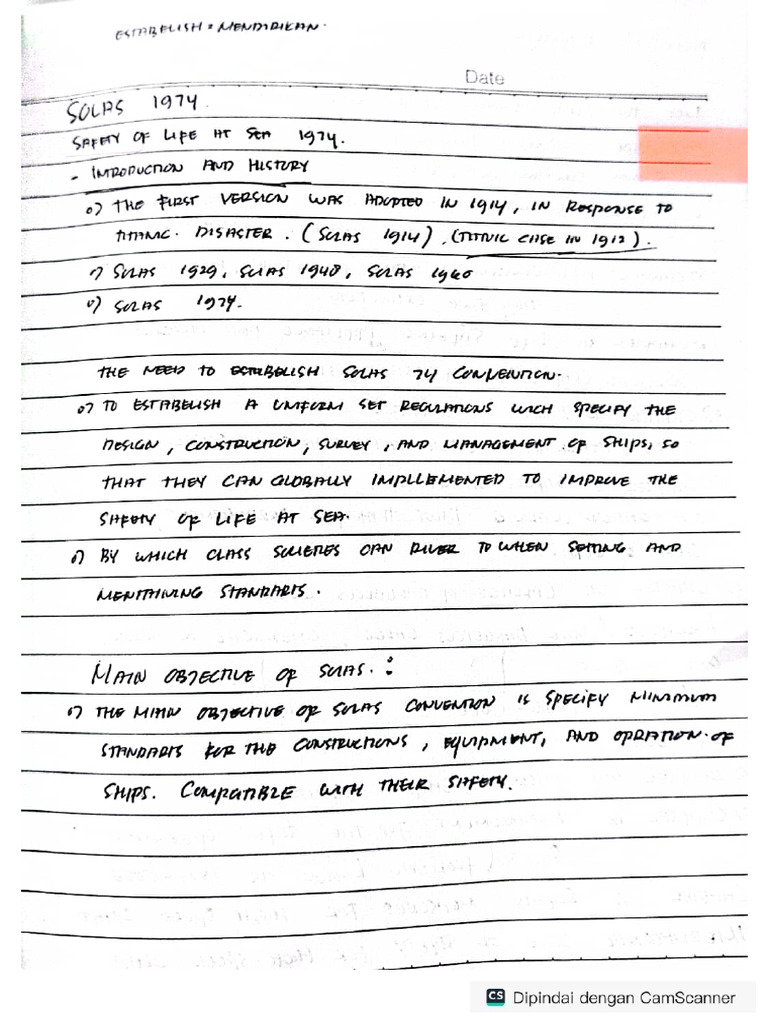 ESTABELISH = MENDIRIKAN.
Date
SOLAS 1974.
SAFETY OF LIFE AT SEA 1974.
- INTRODUCTION AND HISTORY
o) THE FIRST VERSION WAS ADOPTED IN 1914, IN RESPONSE TO
TITANIC. DISASTER. (SOLAS 1914). (TITINIC CASE IN 1912).
o) SOLAS 1929, SOLAS 1948, SOLAS 1960
o) SOLAS 1974.
THE NEED TO ESTABELISH SOLAS 74 CONVENTION.
o) TO ESTABELISH A UNIFORM SET REGULATIONS WICH SPECIFY THE
DESIGN, CONSTRUCTION, SURVEY, AND MANAGEMENT OF SHIPS, SO
THAT THEY CAN GLOBALLY IMPLLEMENTED TO IMPROVE THE
SAFETY OF LIFE AT SEA.
o) BY WHICH CLASS SOCIETIES CAN TO WHEN SETTING AND
MENTAINING STANDARTS.
MAIN OBJECTIVE OF SOLAS. :
o) THE MIAN OBJECTIVE OF SOLAS CONVENTION IS SPECIFY MINIMUM
STANDARTS FOR THE CONSTRUCTIONS, EQUIPMENT, AND OPRATION OF
SHIPS. COMPATIBLE WITH THEIR SAFETY.
CS Dipindai dengan CamScanner